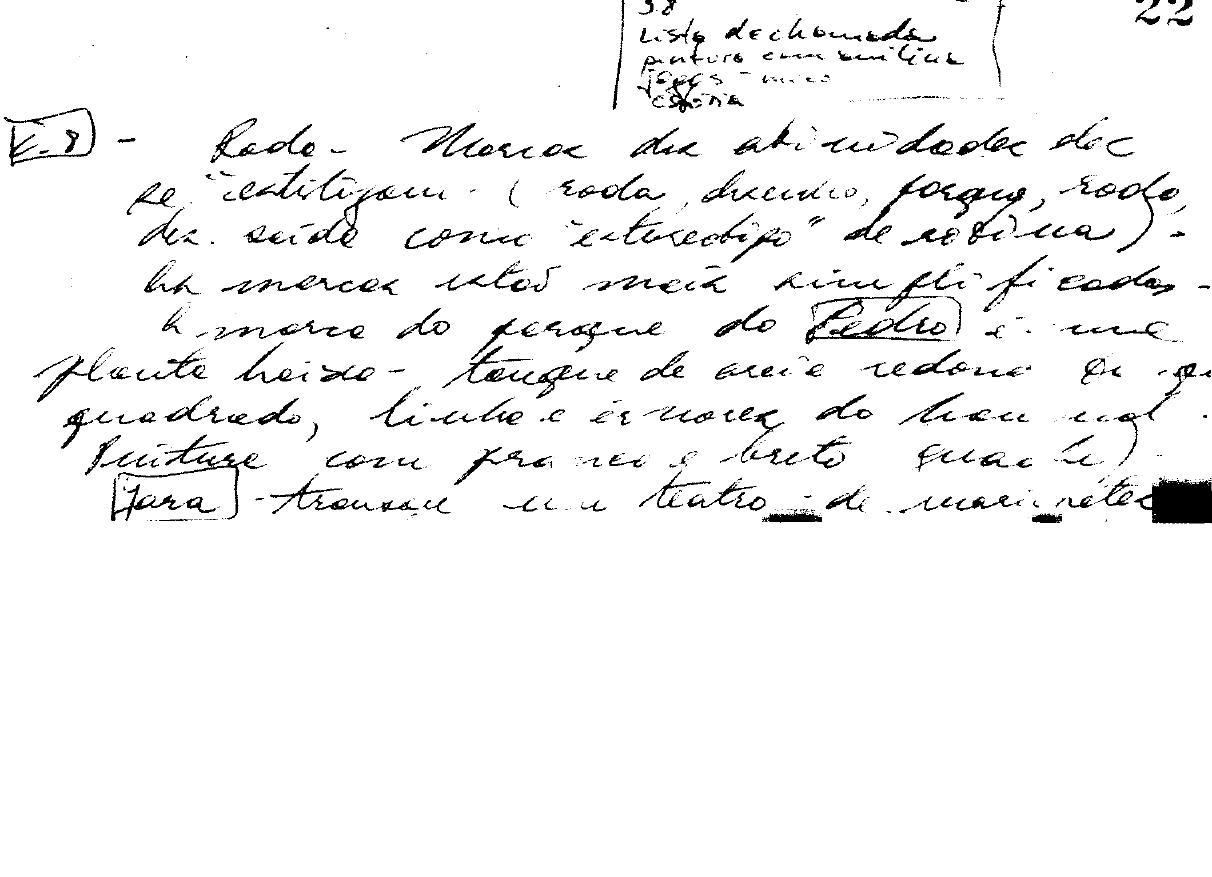 38
22
Lista de chamada
pintura com
jogos - mico
estória
- Roda - Marca das atividades
se "estilizam" (roda, desenho, parque, roda,
des. saída como "estereótipo" de rotina) -
As marcas estão mais simplificadas -
A marca do parque do Pedro é uma
planta baixa - tanque de areia redondo ou
quadrado, linha e árvores do
Pintura com branco e preto guache)
Iara - trouxe um teatro de marionetes